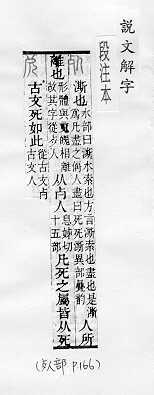 說文解字
段注本
澌也
水部曰澌水索也方言澌索也盡也是澌
爲凡盡之偁人盡曰死死澌異部曡韵
人所
離也
形體與䰟魄相離
故其字從歺人
从歺人
息姊切
十五部
凡死之屬皆从死
古文死如此
從古文歺
古文人
(歺部 P166)